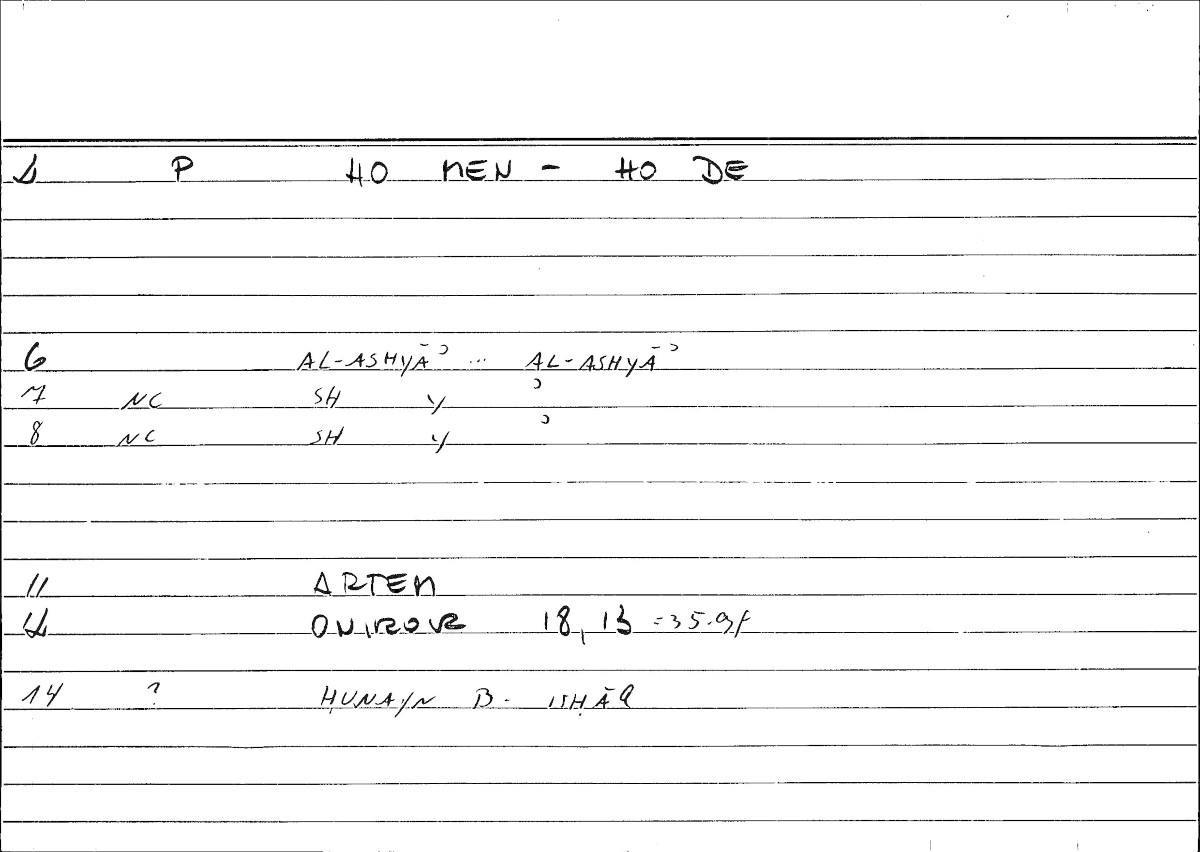 P HO MEN - HO DE
6 AL-ASHYĀʾ ... AL-ASHYĀʾ
7 NC SH Y ʾ
8 NC SH Y ʾ
11 ARTEM
ONIROCR 18,13 =35.9f
14 ? ḤUNAYN B. ISḤĀQ